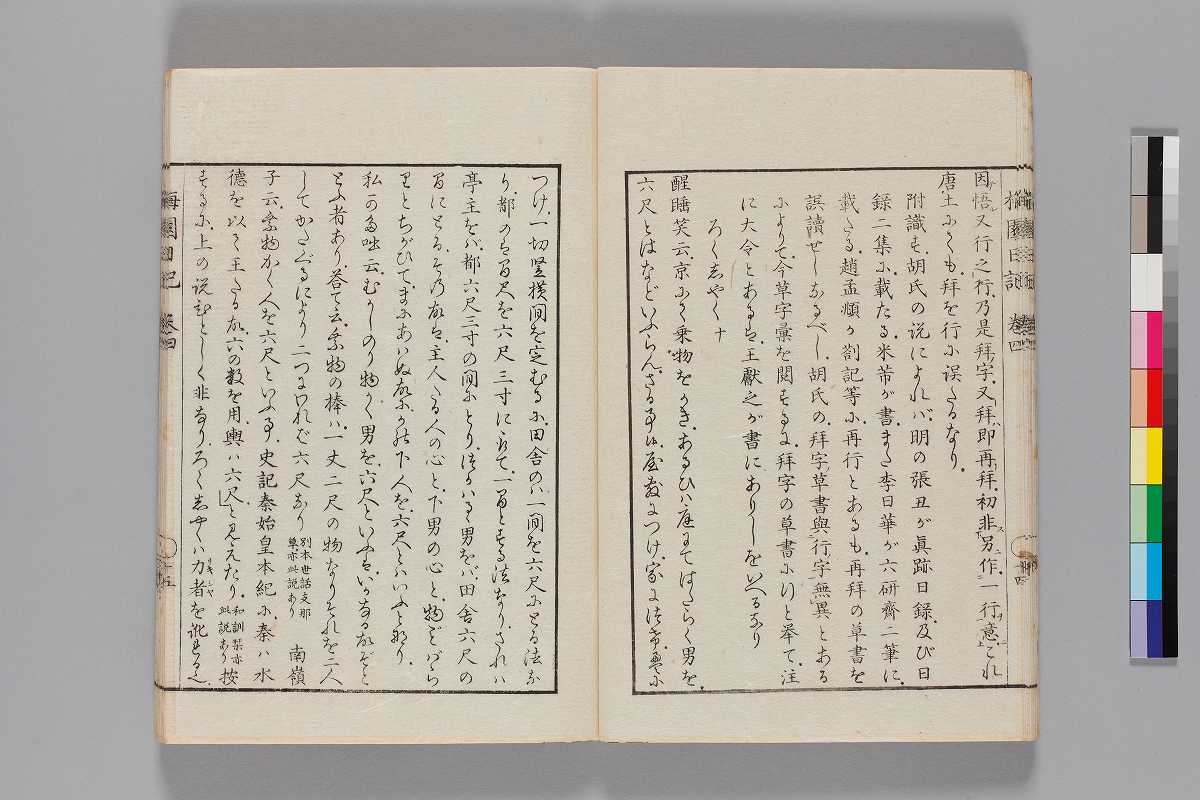 因悟又行之行乃是拜字又拜即再拜初非另作一行意これ
唐土にても拜を行に誤たるなり
附識す胡氏の説によれバ明の張丑が眞跡日録及び日
録二集に載たる米芾が書また李日華が六研齋二筆に
載たる趙孟頫が劄記等に再行とあるも再拜の草書を
誤讀せしなるべし胡氏の拜字草書與行字無異とある
によりて今草字彙を閲するに拜字の草書に行と擧て注
に大令とあるは王獻之が書にありしをいへるなり
ろくしやく十
醒睡笑云京にて乗物をかきあるひハ庭にてはたらく男を
六尺とはなどいふらんさる事候屋敷につけ家に
つけ一切竪横間を定むるに田舎のハ一間を六尺にとる法な
り都のは六尺三寸に一間とする法なりされハ
亭主をバ都六尺三寸の間にとりつかハるゝ男をバ田舎六尺の
間にとるその故は主人たる人の心と下男の心と物ごとばら
りとちがひてまにあいぬ故にかの下人を六尺とハいふと
私の云むかしのり物かく男を六尺といふはいかなる故ぞと
とふ者あり答て云乗物の棒ハ一丈二尺の物なりそれを二人
してかたぐるにより二つにわれバ六尺なり別本世話支那草亦此説あり 南嶺
子云乗物かく人を六尺といふ事史記秦始皇本紀に秦ハ水
德を以て王たる故六の數を用輿ハ六尺と見えたり和訓栞亦此説あり按
ずるに上の説ひとしく非なりろくしやくハ力者を訛れる也
梅園日記 卷四